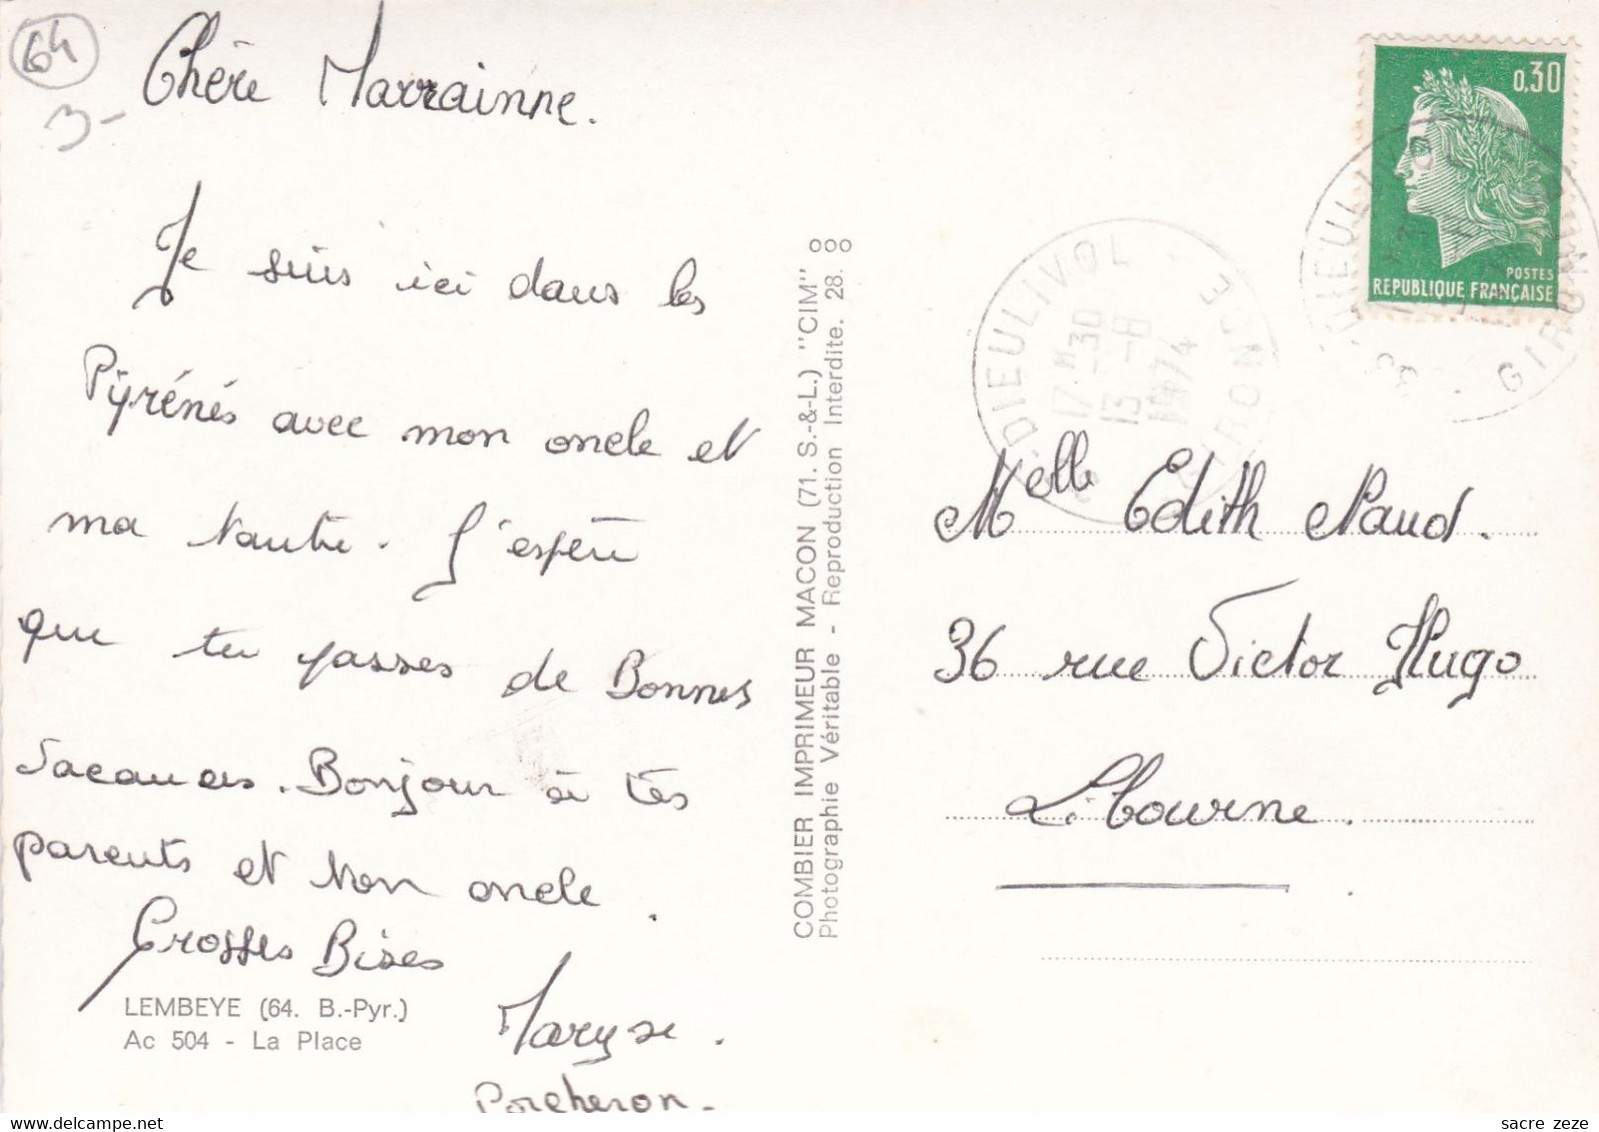 64
3-
Chère Marrainne.
Je suis ici dans les
Pyrénés avec mon oncle et
ma tante. J'espère
que tu passes de Bonnes
Vacances. Bonjour à tes
parents et ton oncle.
Grosses Bises
Maryse.
Porcheron.
LEMBEYE (64. B.-Pyr.)
Ac 504 - La Place
COMBIER IMPRIMEUR MACON (71. S.-&-L.) "CIM"
Photographie Véritable - Reproduction Interdite. 28.
0,30
POSTES
REPUBLIQUE FRANÇAISE
DIEULIVOL
17 H 30
13 -8
1974
GIRONDE
33 DIEULIVOL
GIRONDE
Melle Edith Naud.
36 rue Victor Hugo
Libourne.
sacre zeze